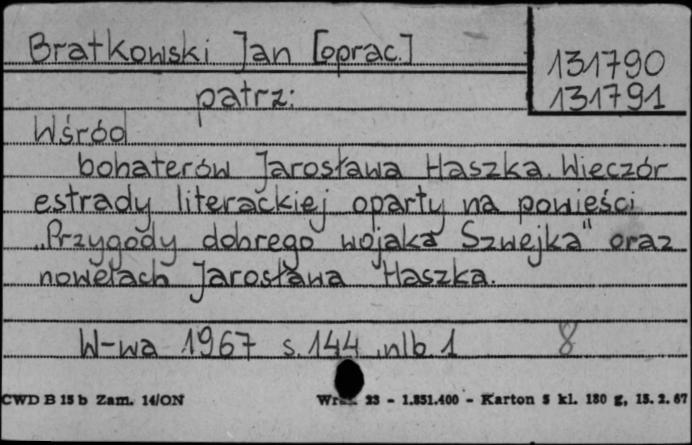 Bratkowski Jan [oprac.]
131790
131791
patrz:
Wśród
bohaterów Jarosława Haszka. Wieczór
estrady literackiej oparty na powieści
„Przygody dobrego wojaka Szwejka" oraz
nowelach Jarosława Haszka.
W-wa 1967 s. 144, nlb. 1
8
CWD B 15 b Zam. 14/ON
23 - 1.851.400 - Karton 5 kl. 180 g, 15. 2. 67